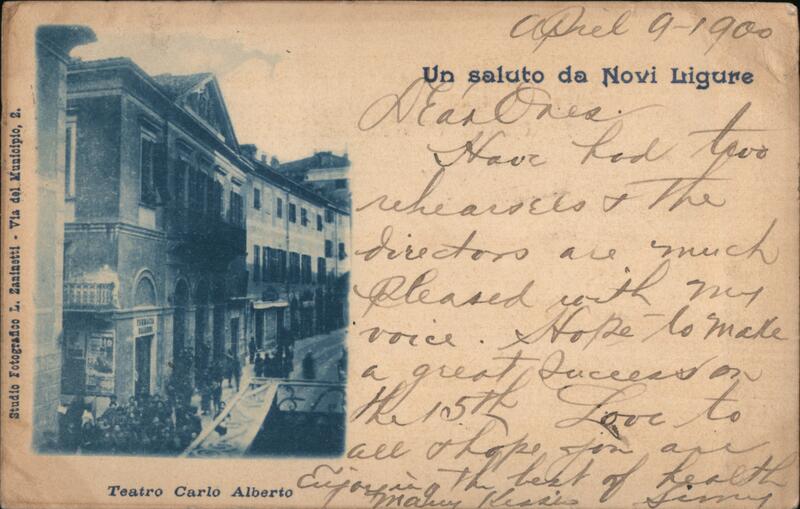 April 9-1900
Un saluto da Novi Ligure
Dear Ones.
Have had two
rehearsels & the
directors are much
pleased with my
voice. Hope to make
a great success on
the 15th Love to
all & hope you are
Enjoying the best of health
Many Kisses
Studio Fotografico L. Zaninetti - Via del Municipio, 2.
Teatro Carlo Alberto